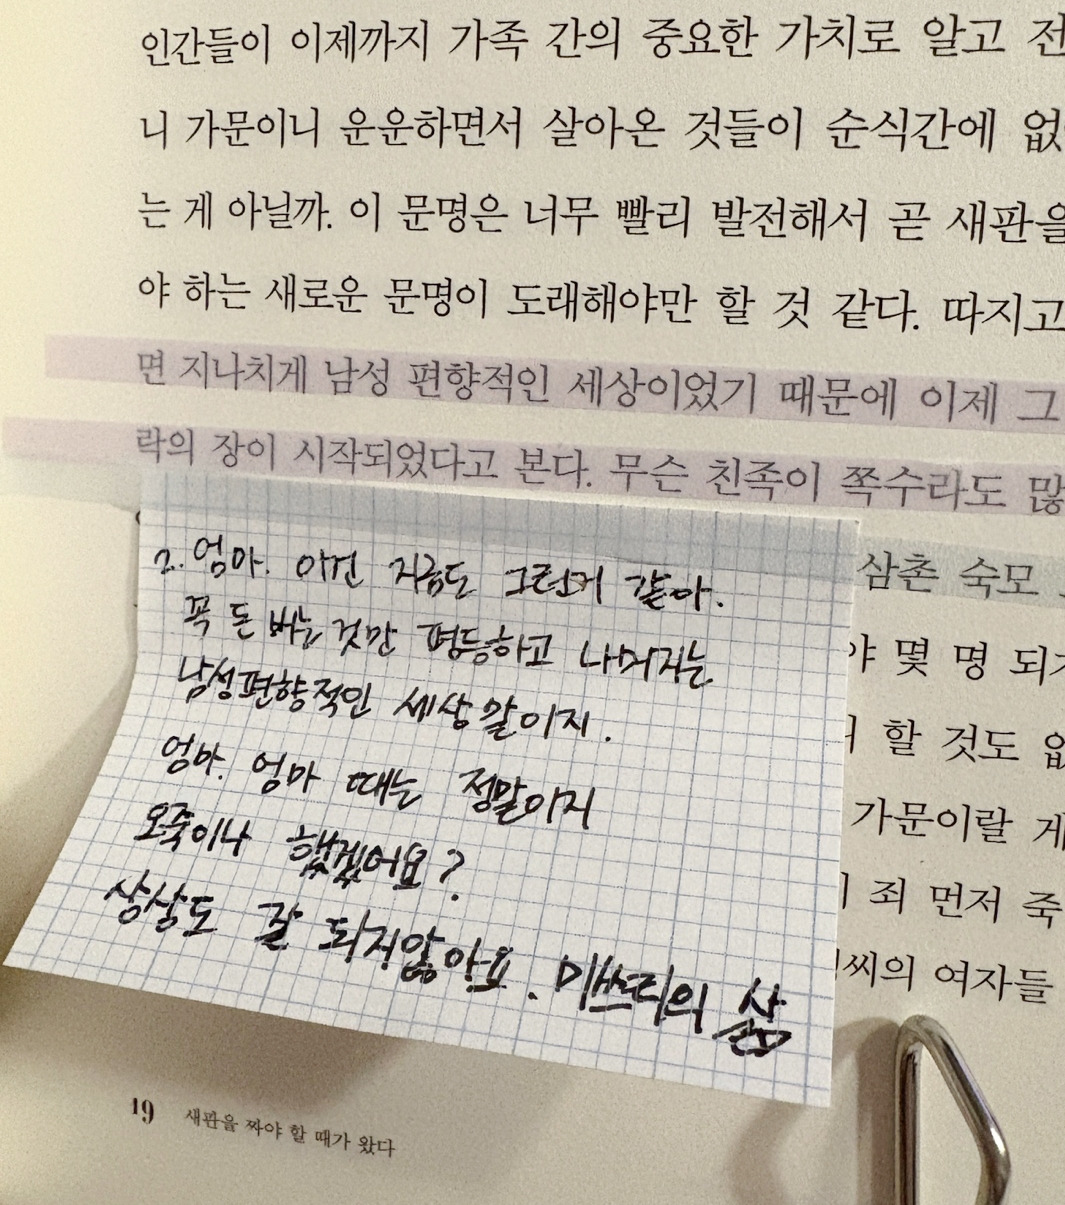 인간들이 이제까지 가족 간의 중요한 가치로 알고 전
니 가문이니 운운하면서 살아온 것들이 순식간에 없
는 게 아닐까. 이 문명은 너무 빨리 발전해서 곧 새판을
야 하는 새로운 문명이 도래해야만 할 것 같다. 따지고
면 지나치게 남성 편향적인 세상이었기 때문에 이제 그
락의 장이 시작되었다고 본다. 무슨 친족이 쪽수라도 많
삼촌 숙모
야 몇 명 되
할 것도 없
가문이랄 게
죄 먼저 죽
씨의 여자들
2. 엄마. 이건 지금도 그런거 같아.
꼭 돈 버는 것만 평등하고 나머지는
남성편향적인 세상 말이지.
엄마. 엄마 때는 정말이지
오죽이나 했겠어요?
상상도 잘 되지않아요. 미쓰티의 삶
19 새판을 짜야 할 때가 왔다